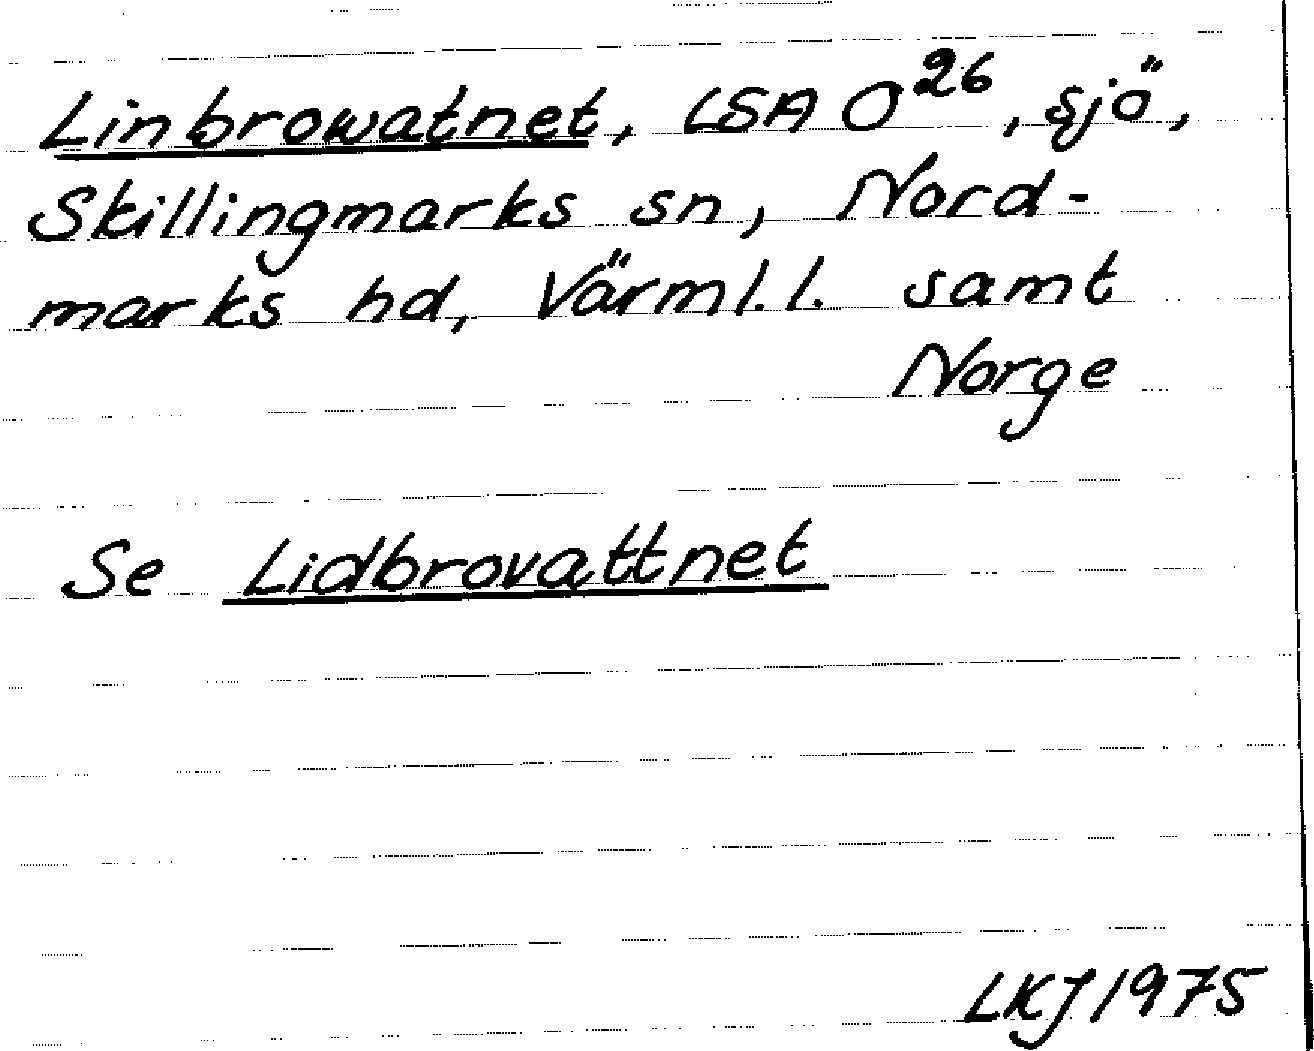 Linbrowatnet, LSA O²⁶, sjö,
Skillingmarks sn, Nord-
marks hd, Värml. l. samt
Norge
Se Lidbrovattnet
LKJ 1975